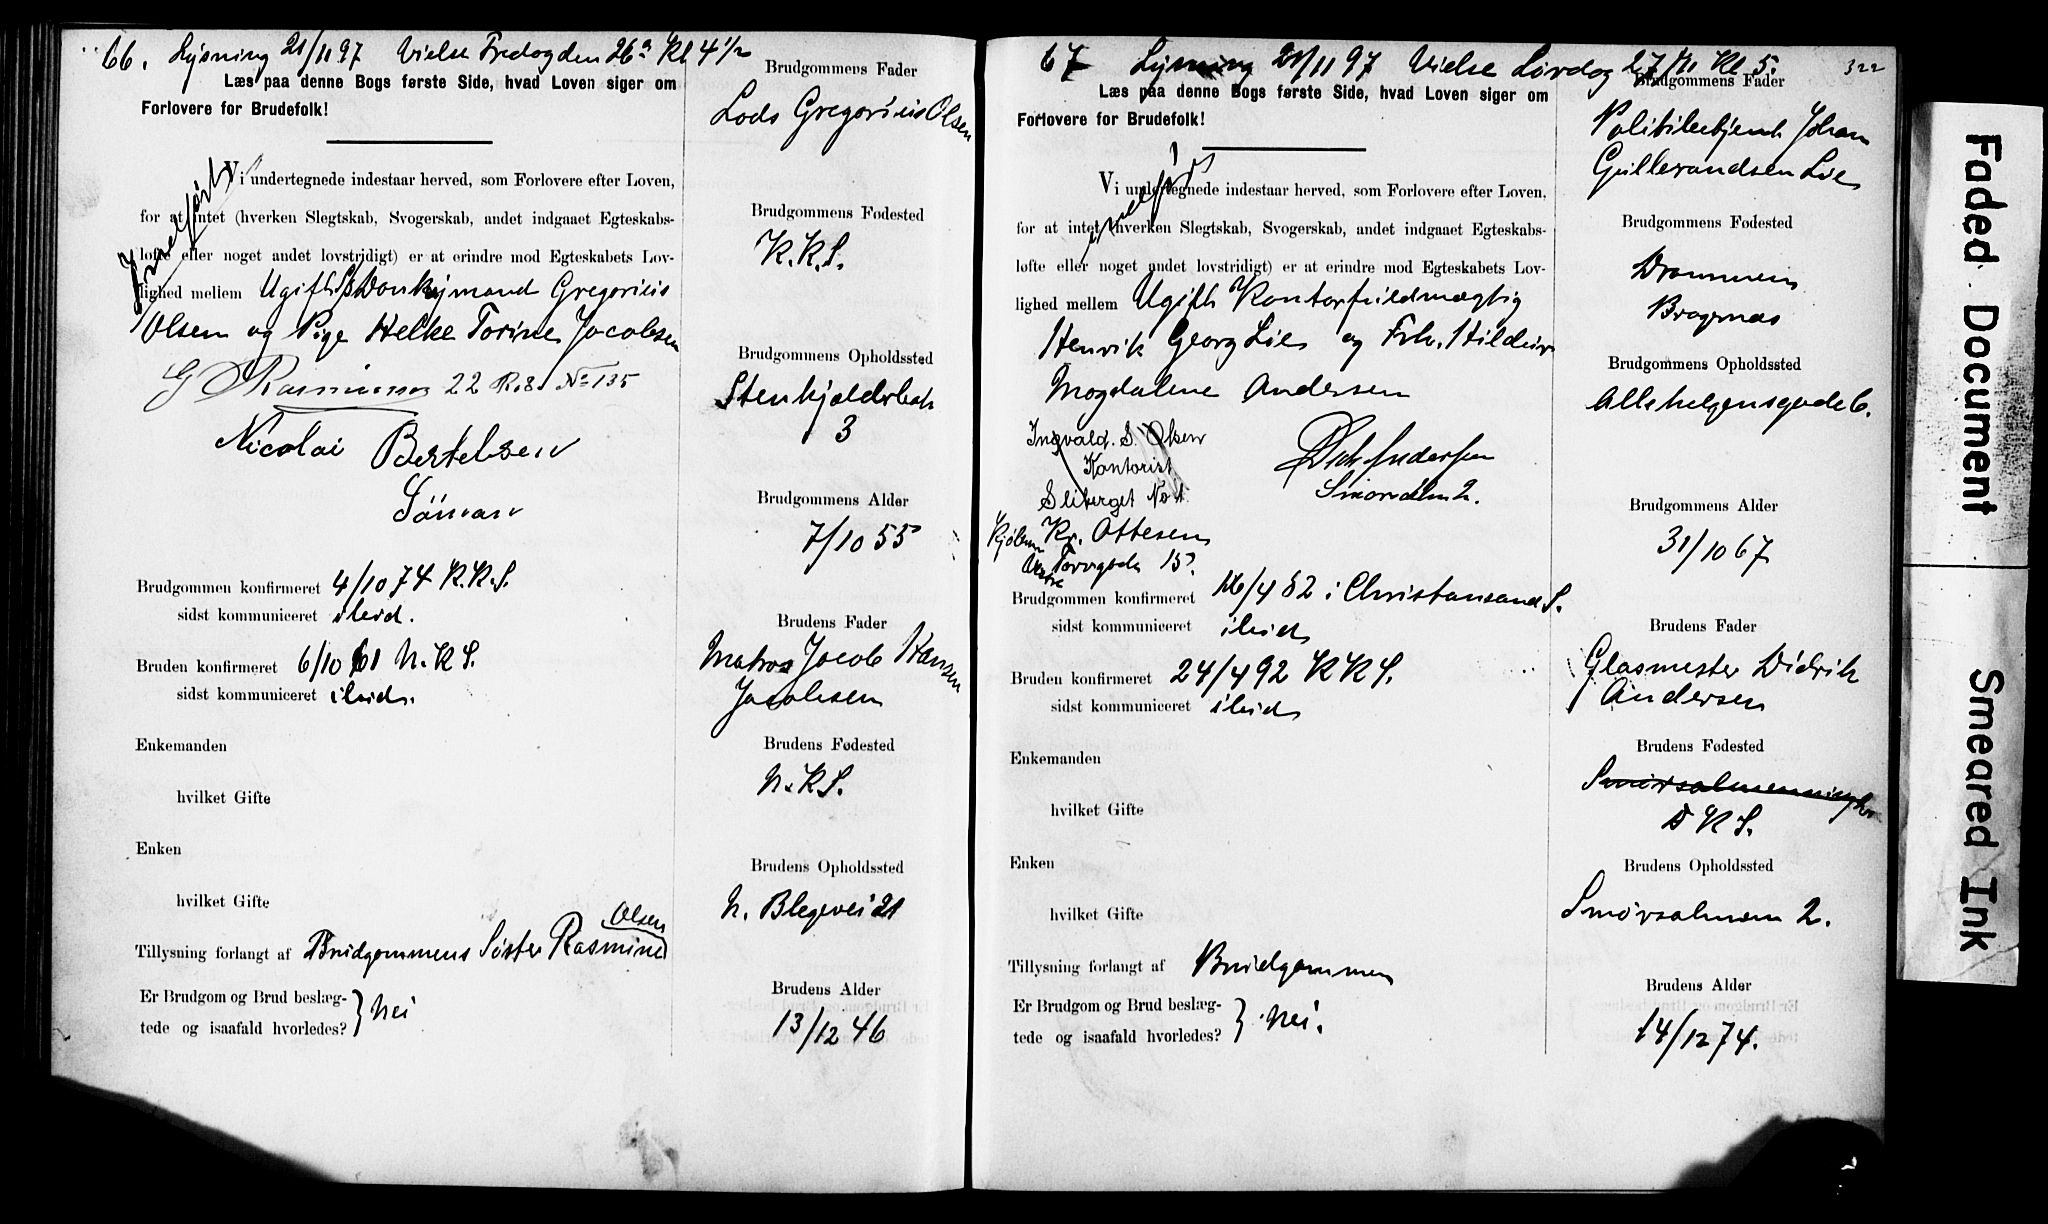 66. Lysning 21/11 97 Vielse Fredag den 26de Kl 4 1/2
Læs paa denne Bogs første Side, hvad Loven siger om
Forlovere for Brudefolk!
Indført
Vi undertegnede indestaar herved, som Forlovere efter Loven,
for at intet (hverken Slegtskab, Svogerskab, andet indgaaet Egteskabs-
løfte eller noget andet lovstridigt) er at erindre mod Egteskabets Lov-
lighed mellem Ugift Donkeymand Gregorius
Olsen og Pige Helke Torine Jacobsen
G Rasmussen 22 R. 8 No 135
Nicolai Bertelsen
Söman
Brudgommen konfirmeret 4/10 74 K.K.S.
sidst kommuniceret ileid.
Bruden konfirmeret 6/10 61 N.K.S.
sidst kommuniceret ileid.
Enkemanden
hvilket Gifte
Enken
hvilket Gifte
Tillysning forlangt af Brudgommens Søster Rasmine Olsen
Er Brudgom og Brud beslæg-
tede og isaafald hvorledes? } Nei
Brudgommens Fader
Lods Gregorius Olsen
Brudgommens Fødested
K.K.S.
Brudgommens Opholdssted
Stenkjælderbak
3
Brudgommens Alder
7/10 55
Brudens Fader
Matros Jacob Hansen
Jacobsen
Brudens Fødested
N.K.S.
Brudens Opholdssted
N. Blegevei 21
Brudens Alder
13/12 46
67 Lysning 21/11 97 Vielse Lørdag 27/11 Kl 5.
322
Læs paa denne Bogs første Side, hvad Loven siger om
Forlovere for Brudefolk!
indført
Vi undertegnede indestaar herved, som Forlovere efter Loven,
for at intet (hverken Slegtskab, Svogerskab, andet indgaaet Egteskabs-
løfte eller noget andet lovstridigt) er at erindre mod Egteskabets Lov-
lighed mellem Ugift Kontorfuldmægtig
Henrik Georg Lie og Frk. Hildur
Magdalene Andersen
Ingvald. S. Olsen
Kontorist
Sliberget No 1.
Didr Andersen
Smørsalm 2.
Kjøbm Kr. Ottesen
Østre Torvgade 15.
Brudgommen konfirmeret 16/4 82 i Christansand S.
sidst kommuniceret ileid
Bruden konfirmeret 24/4 92 K K S.
sidst kommuniceret ileid
Enkemanden
hvilket Gifte
Enken
hvilket Gifte
Tillysning forlangt af Brudgommen
Er Brudgom og Brud beslæg-
tede og isaafald hvorledes? } Nei.
Brudgommens Fader
Politibetjent Johan
Gulbrandsen Lie
Brudgommens Fødested
Drammen
Bragernæs
Brudgommens Opholdssted
Allehelgensgade 6.
Brudgommens Alder
31/10 67
Brudens Fader
Glasmester Didrik
Andersen
Brudens Fødested
D K S.
Brudens Opholdssted
Smørsalmen 2.
Brudens Alder
14/12 74.
Faded Document
Smeared Ink